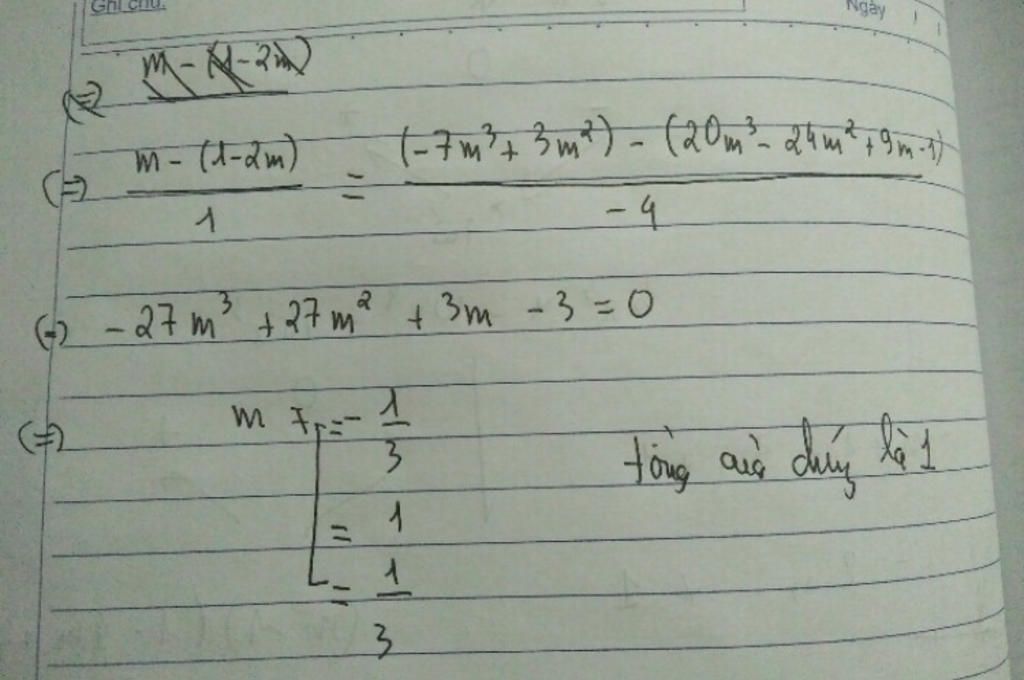 Ghi chú:
Ngày / /
(=) m - (1-2m)
(=) m - (1-2m) / 1 = (-7m³ + 3m²) - (20m³ - 24m² + 9m - 1) / -4
(=) -27m³ + 27m² + 3m - 3 = 0
(=) m = -1/3
= 1
tổng của chúng là 1
= 1/3